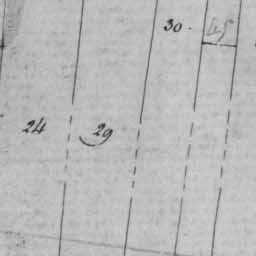 30. 45
24 29